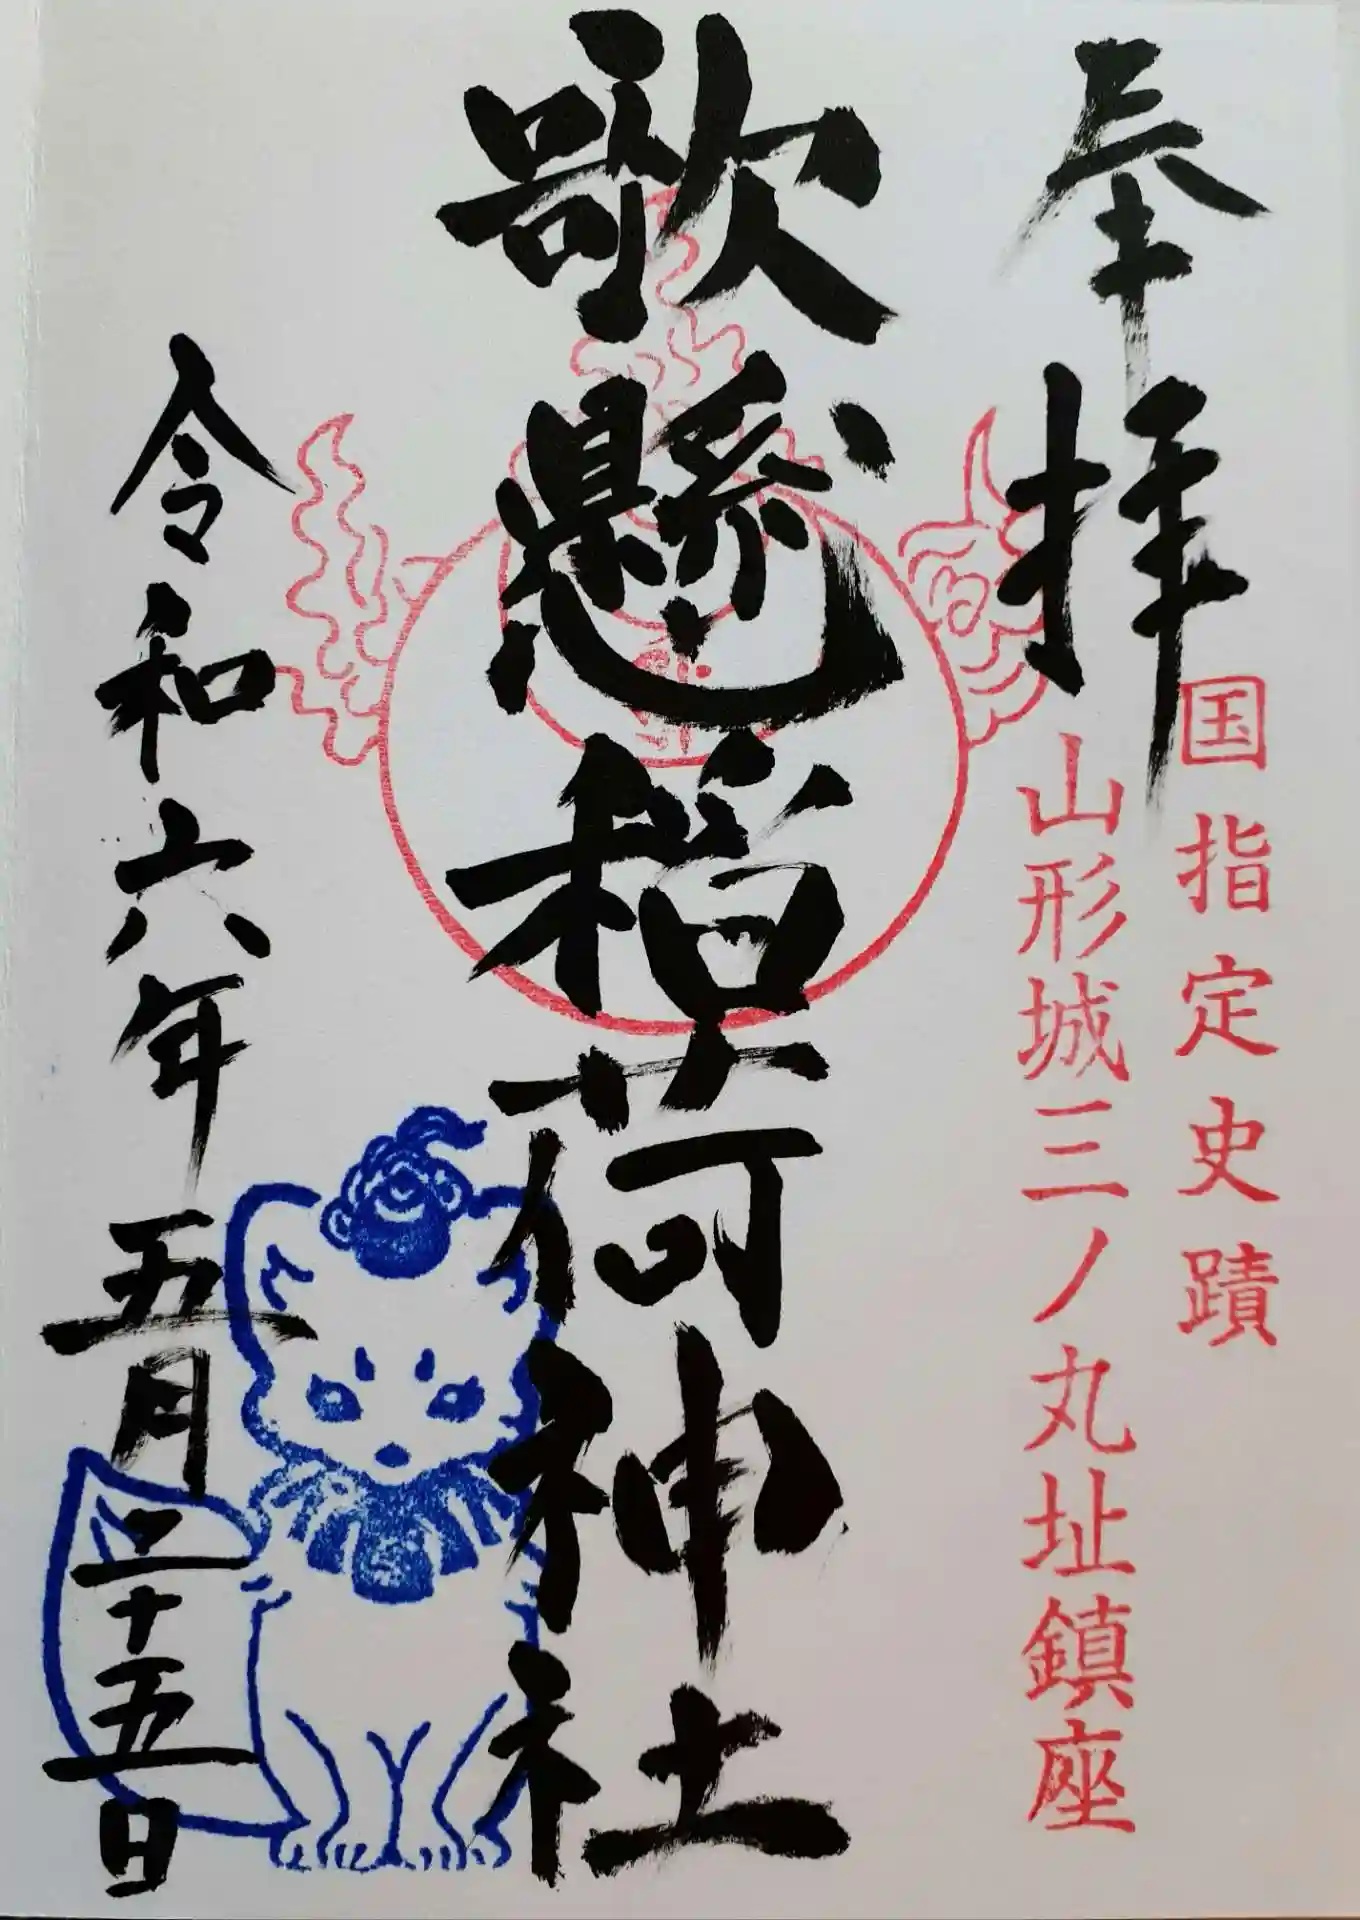 奉拝
国指定史蹟
山形城三ノ丸址鎮座
歌懸稲荷神社
令和六年五月二十五日